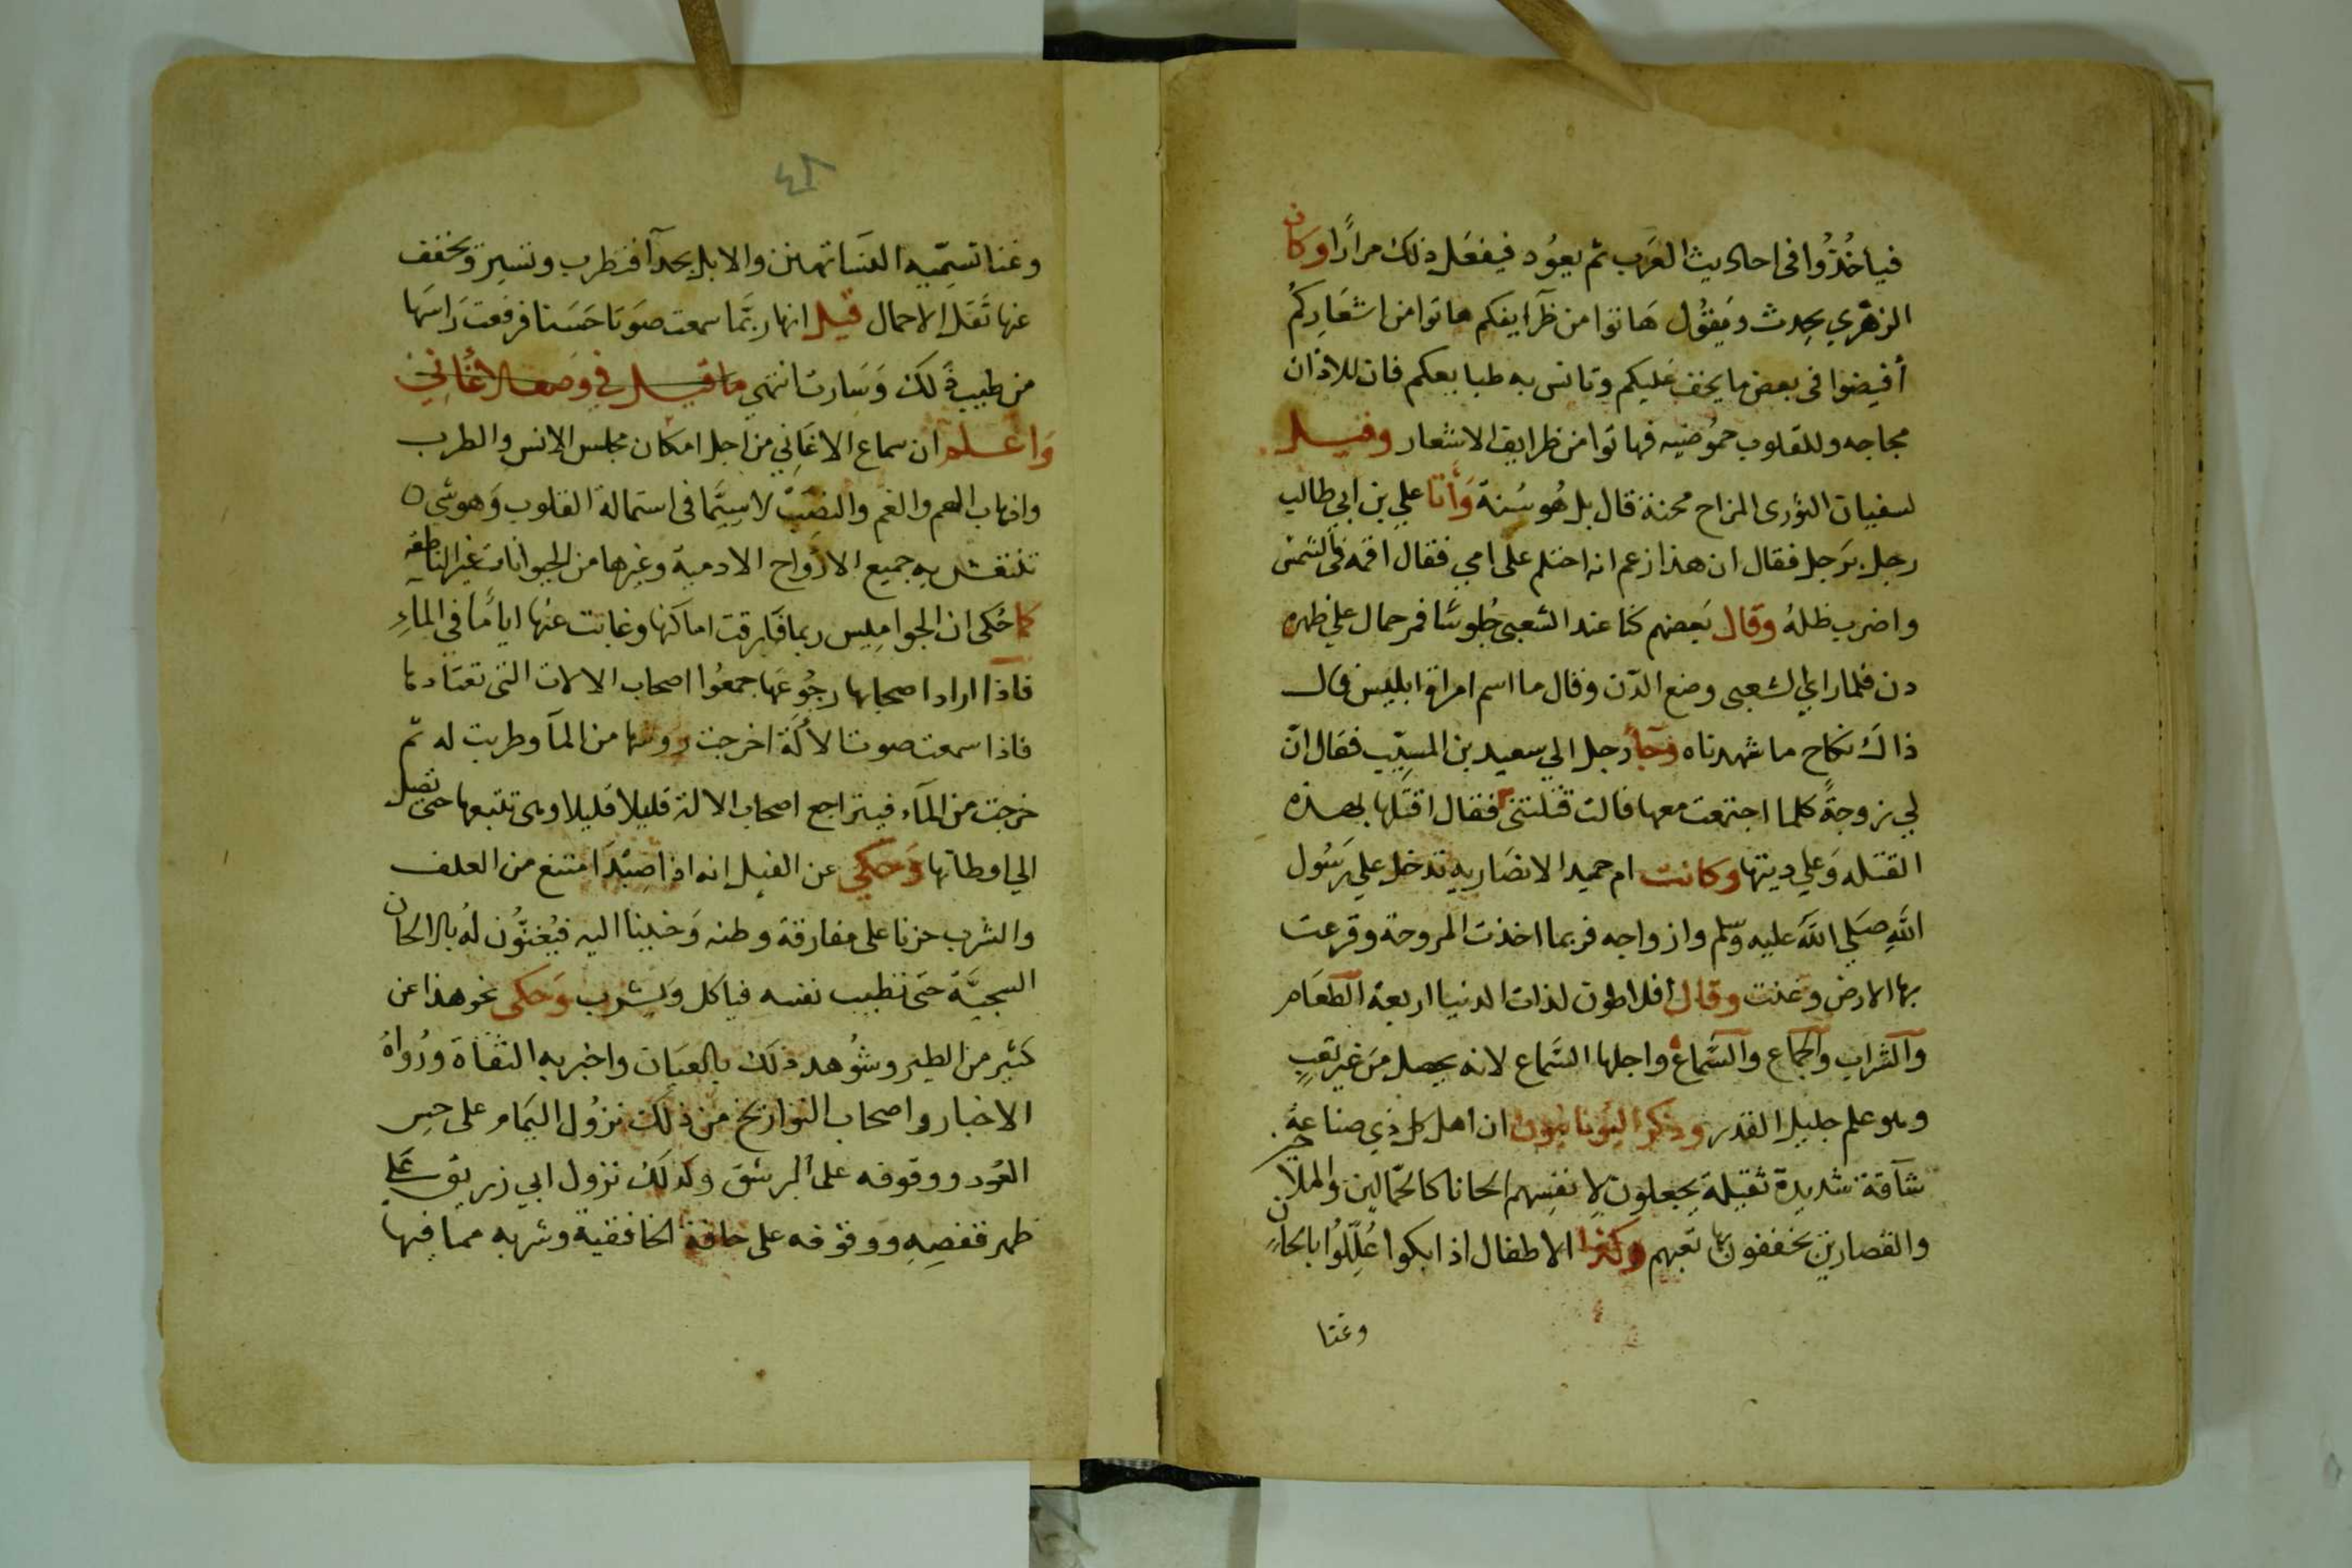 فياخُذُوا في احاديث العَرب ثم يعوُد فيفعَل ذلك مرارًا وكان
الزهري يحدث ويَقوُل هَاتوا من ظرايفكم هاتوا من اشعَاركُم
أفيضوا في بعض ما يخف عَليكم وتانس به طبايعكم فان للاذان
مجاجه وللقلوب حموُضيه فهاتوا من ظرايف الاشعار وقيل
لسفيان الثوري المزاح محنة قال بل هُو سُنة وَأتا علي بن ابي طالب
رجل برَجل فقال ان هذا زعم انه احتلم على امي فقال اقمه في الشمس
واضرب ظلهُ وقال بَعضهم كنا عند الشعبي جُلوسًا فمر حمال علي ظهره
دن فلما راي الشعبي وضع الدّن وقال ما اسم امراة ابليس قال
ذاك نكاح ما شهدناه وجآ رجل الي سعيد بن المسيّب فقال انّ
لي زوجةً كلما اجتمعت معها قالت قتلتني فقال اقتلها بهذه
القتله وَعلي ديتها وكانت ام حميد الانصَاريه تدخل علي رَسُول
اللهِ صَلي اللهَ عليه وسلم وازواجه فربما اخذت المروحة وقرعت
بها الارض وغنت وقال أفلاطون لذات الدنيا اربعة الطعَام
والشراب والجماع والسَّماع واجلها السَّماع لانه يحصل من غير تعبٍ
وهو علم جليل القدر وذكر اليُونانيون ان اهل كل ذي صناعةٍ
شآقة شديدة ثقيلة يجعلون لانفسهم الحانا كالحمّالين والملاحين
والقصارين يخففون بها تعبهم وكذا الاطفال اذا بكوا عُلِّلُوا بالحانٍ
وغنا
٤٨
وغنا تسمّيه النسَا تهنين والابل بحدآ فتطرب وتسير ويخفف
عنها ثَقَل الاحمال قيل انها ربَّما سمعت صَوتا حَسَنا فرفعت رَاسَها
من طيب ذلك وَسَارت انتهي ما قيل في وصف الاغَانِي
وَاعلم ان سماع الاغَانِي من اجل امكان مجلس الانس والطرب
واذهاب الهم والغم والنصَبْ لاسيَّما في استمالة القلوب وَهو شي
تنتقش به جميع الارْواح الادمية وغيرها من الحيوانات غير الناطقه
كما حُكى ان الجوامِيس ربما فَارقت اماكنها وغابت عنها اياما في المآءِ
فاذا اراد اصحابها رجُوعَها جمعُوا اصحاب الالات التي تعتادها
فاذا سمعت صوت الاآلة اخرجت روسها من المآ وطربت له ثم
خرجت من المآء فيتراجع اصحاب الالة قليلا قليلا وهى تتبعها حتى تصل
الي اوطانها وَحكي عن الفيل انه اذا صِيْدَ امتنع من العلف
والشرب حزنا على مفارقة وطنه وَحنينا اليه فيُغنّون لهُ بالالحان
السجيَّة حتى تطيب نفسه فياكل ويشرب وَحكي نحو هذا عن
كثير من الطير وشوُهد ذلك بالعيَان واخبر به الثقاة ورُواةُ
الاخبار واصحاب التواريخ من ذلك نزوُل اليمَام على حس
العُود ووقوفه على وكذلك نزول ابي زريق عَلي
ظهر قفصِهِ ووقوفه على حافة الخافقية وشربه مما فيها